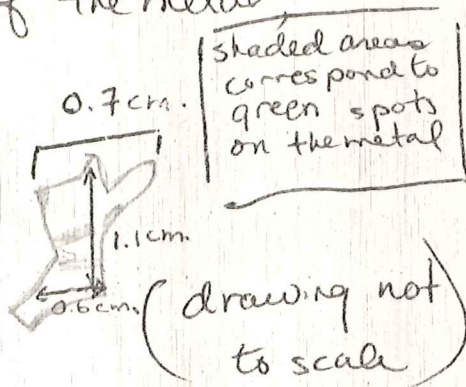 of the metal
shaded areas
correspond to
green spots
on the metal
0.7 cm.
1.1cm.
0.6cm.
(drawing not
to scale)